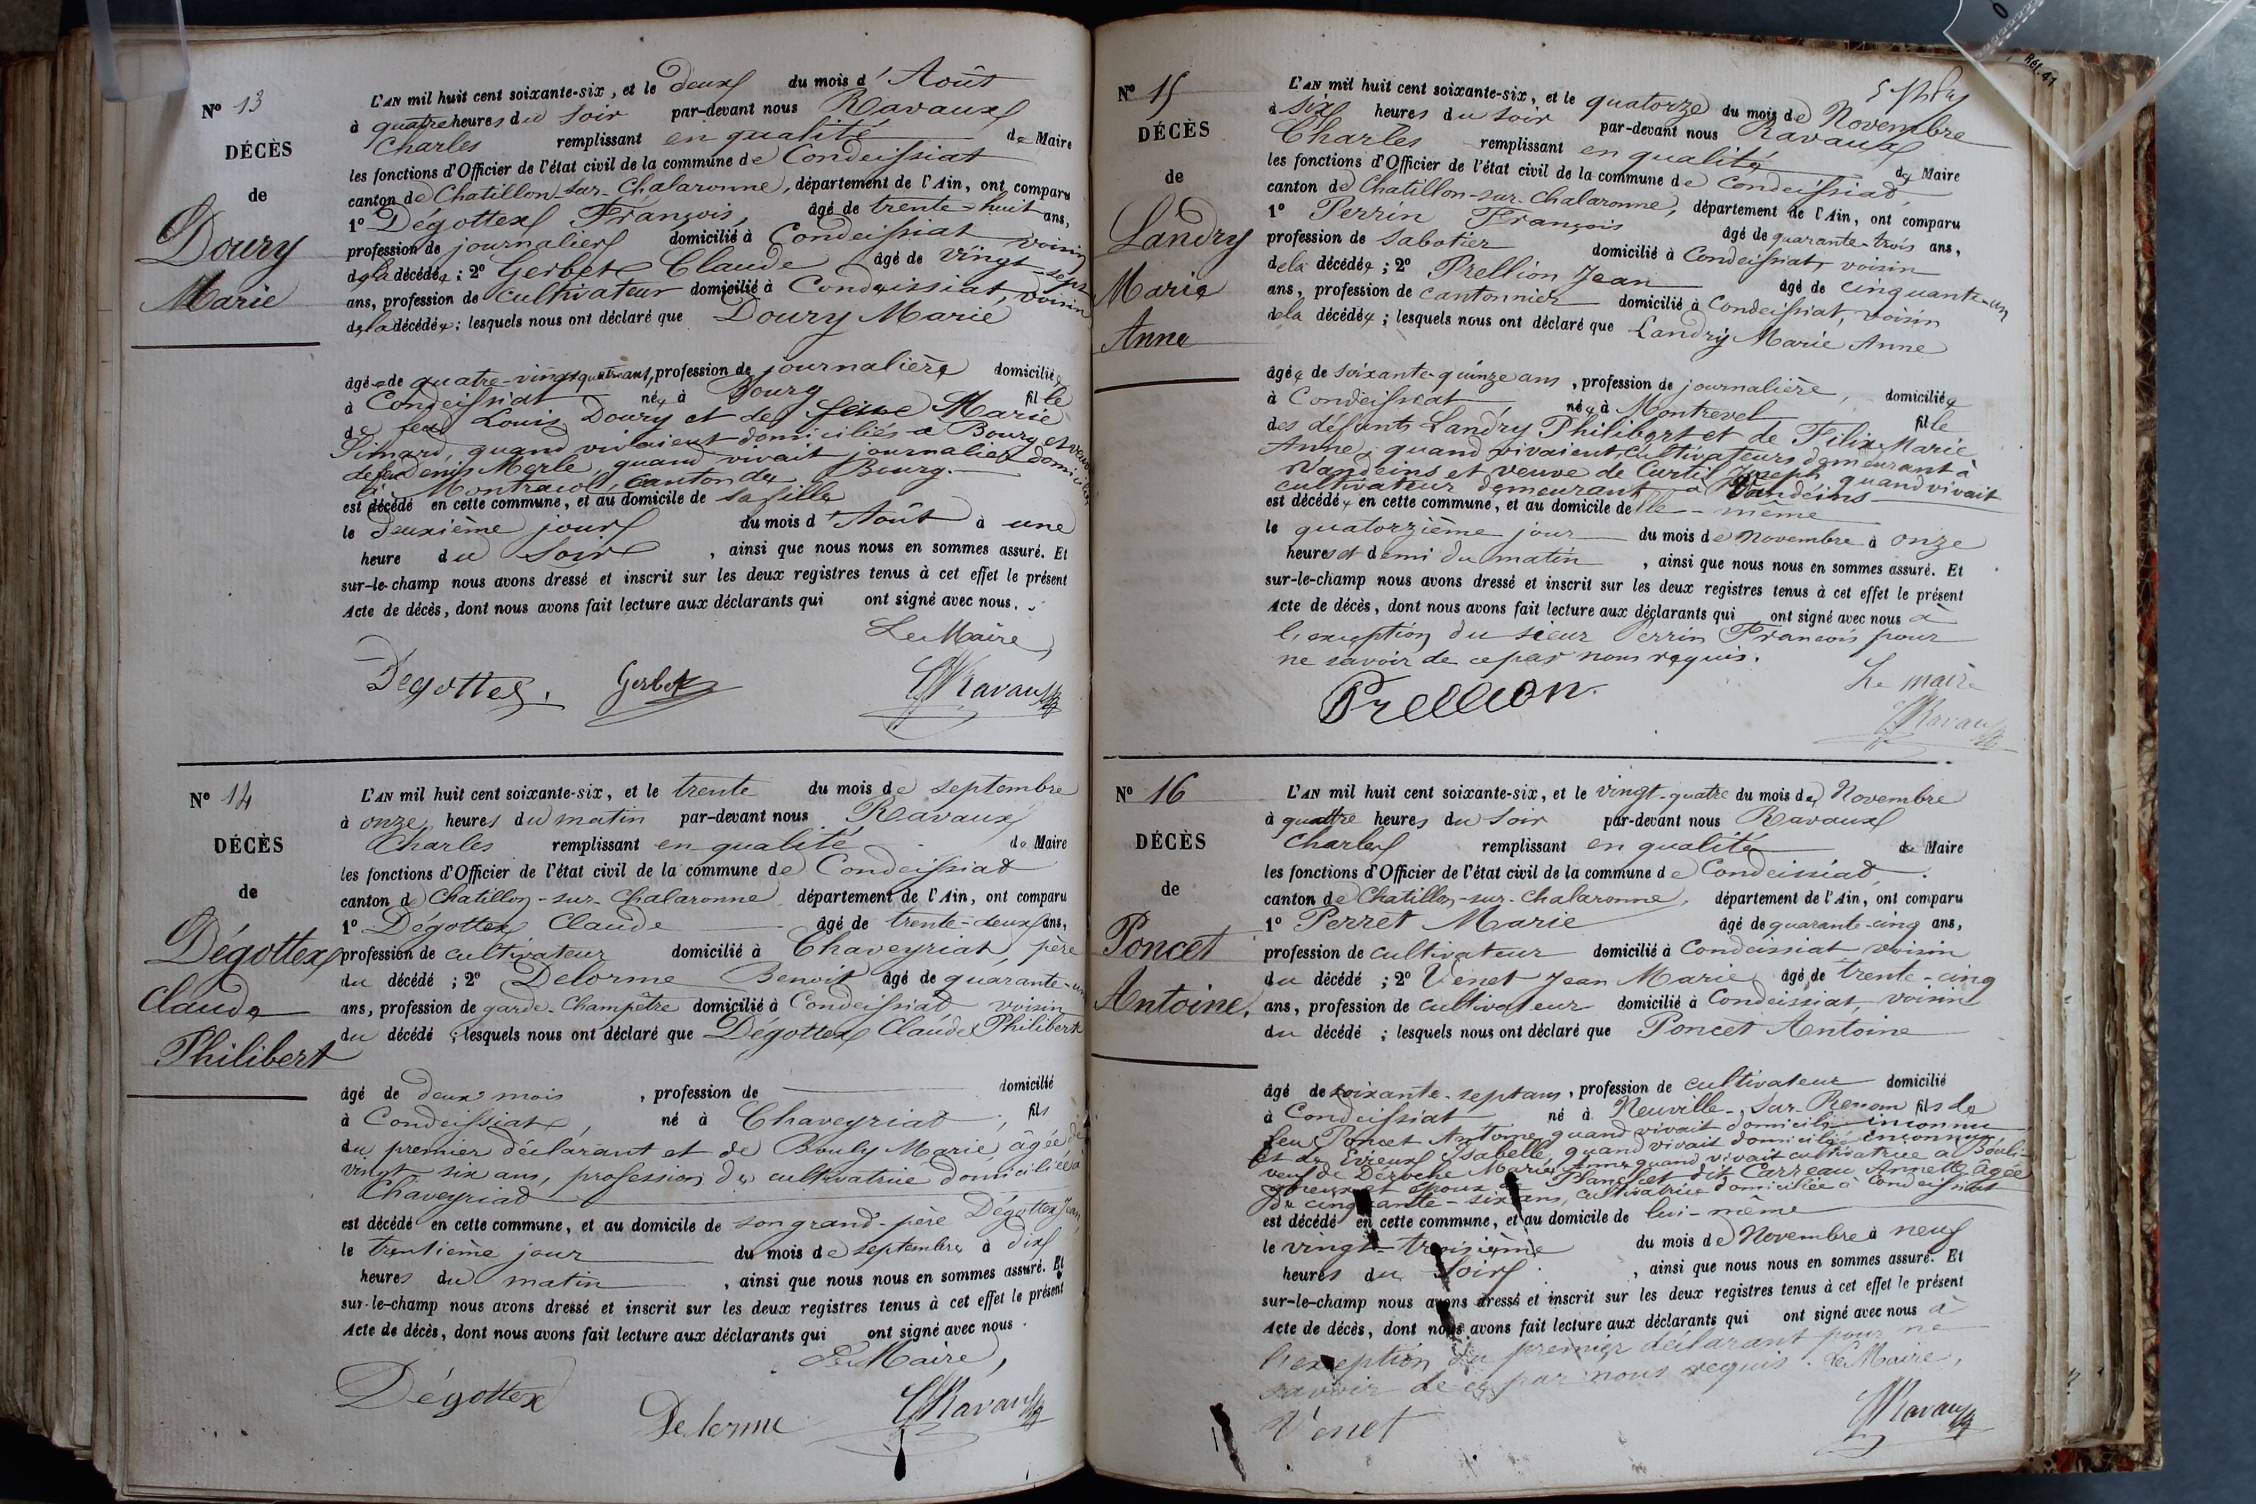 Nº 13
DÉCÈS
de
Doury
Marie
L'AN mil huit cent soixante-six, et le deux du mois d'Août
à quatre heures du soir par-devant nous Ravaux
Charles remplissant en qualité de Maire
les fonctions d'Officier de l'état civil de la commune de Condeissiat
canton de Chatillon-sur-Chalaronne, département de l'Ain, ont comparu
1º Dégottex François, âgé de trente-huit ans,
profession de journalier domicilié à Condeissiat voisin
de la décédée ; 2º Gerbet Claude âgé de vingt-sept
ans, profession de cultivateur domicilié à Condeissiat, voisin
de la décédée ; lesquels nous ont déclaré que Doury Marie
âgée de quatre-vingt quatre ans, profession de journalière domiciliée
à Condeissiat née à Bourg fille
de feu Louis Doury et de feue Marie
Simard, quand vivaient domiciliés à Bourg et veuve
de feu Denis Merle, quand vivait journalier domicilié
à Montracol, canton de Bourg.
est décédé en cette commune, et au domicile de sa fille
le deuxième jour du mois d'Août à une
heure du soir, ainsi que nous nous en sommes assuré. Et
sur-le-champ nous avons dressé et inscrit sur les deux registres tenus à cet effet le présent
Acte de décès, dont nous avons fait lecture aux déclarants qui ont signé avec nous.
Le Maire,
Dégottex. Gerbet Ravaux
Nº 14
DÉCÈS
de
Dégottex
Claude
Philibert
L'AN mil huit cent soixante-six, et le trente du mois de septembre
à onze heures du matin par-devant nous Ravaux
Charles remplissant en qualité de Maire
les fonctions d'Officier de l'état civil de la commune de Condeissiat
canton de Chatillon-sur-Chalaronne département de l'Ain, ont comparu
1º Dégottex Claude âgé de trente-deux ans,
profession de cultivateur domicilié à Chaveyriat, père
du décédé ; 2º Delorme Benoit âgé de quarante-un
ans, profession de garde-Champêtre domicilié à Condeissiat voisin
du décédé ; lesquels nous ont déclaré que Dégottex Claude Philibert
âgé de deux mois, profession de domicilié
à Condeissiat, né à Chaveyriat, fils
du premier déclarant et de Bouly Marie, âgée de
vingt-six ans, profession de cultivatrice domiciliée à
Chaveyriat
est décédé en cette commune, et au domicile de son grand-père Dégottex Jean,
le trentième jour du mois de septembre à dix
heures du matin, ainsi que nous nous en sommes assuré. Et
sur-le-champ nous avons dressé et inscrit sur les deux registres tenus à cet effet le présent
Acte de décès, dont nous avons fait lecture aux déclarants qui ont signé avec nous.
Le Maire,
Dégottex Delorme Ravaux
Réf. 41
Nº 15
DÉCÈS
de
Landry
Marie
Anne
L'AN mil huit cent soixante-six, et le quatorze du mois de Novembre
à six heures du soir par-devant nous Ravaux
Charles remplissant en qualité de Maire
les fonctions d'Officier de l'état civil de la commune de Condeissiat,
canton de Chatillon-sur-Chalaronne, département de l'Ain, ont comparu
1º Perrin François âgé de quarante-trois ans,
profession de sabotier domicilié à Condeissiat, voisin
de la décédée ; 2º Prellion Jean âgé de cinquante-un
ans, profession de cantonnier domicilié à Condeissiat, voisin
de la décédée ; lesquels nous ont déclaré que Landry Marie Anne
âgée de soixante-quinze ans, profession de journalière, domiciliée
à Condeissiat née à Montrevel fille
des défunts Landry Philibert et de Félix Marie
Anne, quand vivaient, cultivateurs demeurant à
Vandeins et veuve de Curtil Joseph quand vivait
cultivateur demeurant à Vandeins
est décédée en cette commune, et au domicile d'elle-même
le quatorzième jour du mois de Novembre à onze
heures et demi du matin, ainsi que nous nous en sommes assuré. Et
sur-le-champ nous avons dressé et inscrit sur les deux registres tenus à cet effet le présent
Acte de décès, dont nous avons fait lecture aux déclarants qui ont signé avec nous à
l'exception du sieur Perrin François pour
ne savoir de ce par nous requis.
Le maire
Prellion Ravaux
Nº 16
DÉCÈS
de
Poncet
Antoine.
L'AN mil huit cent soixante-six, et le vingt-quatre du mois de Novembre
à quatre heures du soir par-devant nous Ravaux
Charles remplissant en qualité de Maire
les fonctions d'Officier de l'état civil de la commune de Condeissiat.
canton de Chatillon-sur-Chalaronne, département de l'Ain, ont comparu
1º Perret Marie âgé de quarante-cinq ans,
profession de cultivateur domicilié à Condeissiat voisin
du décédé ; 2º Venet Jean Marie âgé de trente-cinq
ans, profession de cultivateur domicilié à Condeissiat, voisin
du décédé ; lesquels nous ont déclaré que Poncet Antoine
âgé de soixante-sept ans, profession de cultivateur domicilié
à Condeissiat né à Neuville-sur-Renom fils de
feu Poncet Antoine, quand vivait domicilié inconnu
et de Evieux Isabelle, quand vivait domiciliée inconnue,
veuf de Deroche Marie Anne quand vivait cultivatrice à Bouli-
gneux et époux de Planchet dit Carreau Annette âgée
de cinquante-six ans, cultivatrice domiciliée à Condeissiat
est décédé en cette commune, et au domicile de lui-même
le vingt-troisième du mois de Novembre à neuf
heures du soir, ainsi que nous nous en sommes assuré. Et
sur-le-champ nous avons dressé et inscrit sur les deux registres tenus à cet effet le présent
Acte de décès, dont nous avons fait lecture aux déclarants qui ont signé avec nous à
l'exception du premier déclarant pour ne
savoir de ce par nous requis. Le Maire,
Venet Ravaux